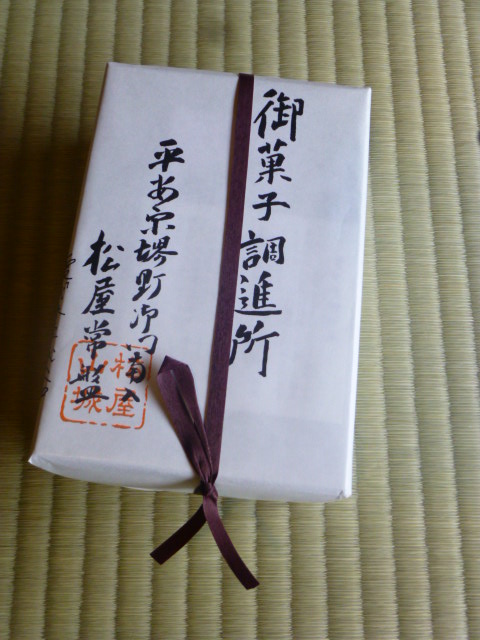 御菓子調進所
平安京堺町御門前入
松屋常盤
松屋
山城